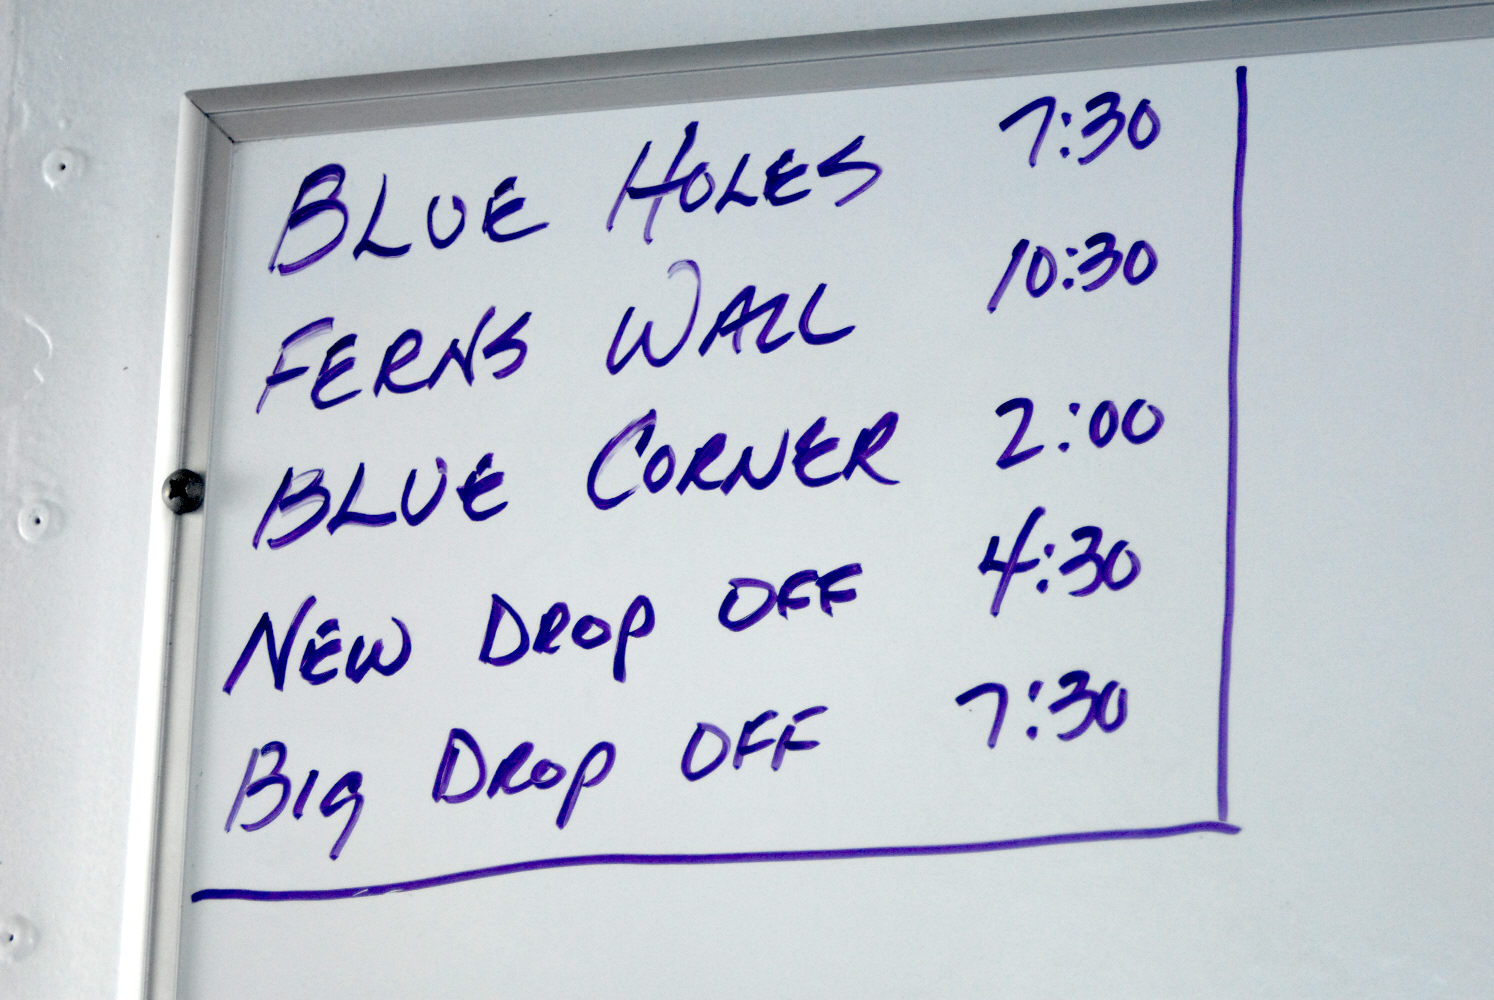 BLUE HOLES 7:30
FERNS WALL 10:30
BLUE CORNER 2:00
NEW DROP OFF 4:30
BIG DROP OFF 7:30